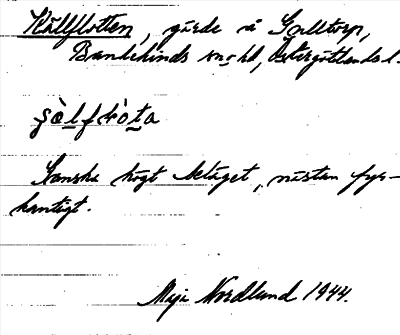 Källflotten, gärde å Gälltorp,
Bankekinds sn o hd, Östergötlands l.
Ganska högt beläget, nästan fyr-
kantigt.
Maja Nordlund 1944.